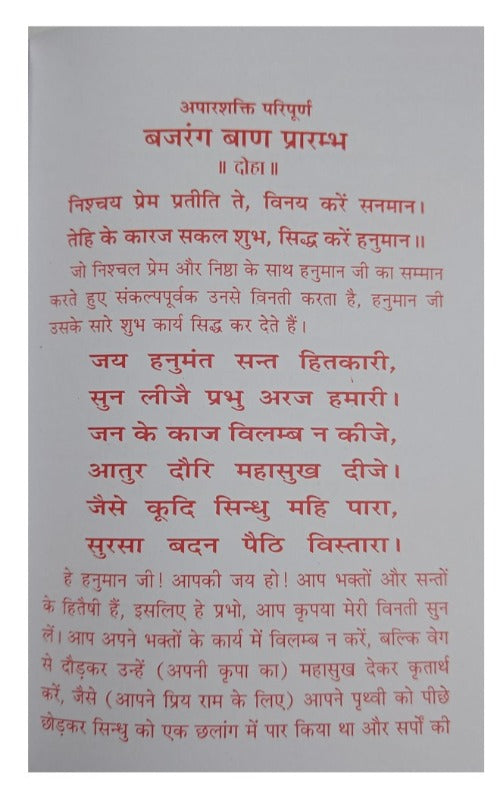 अपारशक्ति परिपूर्ण
बजरंग बाण प्रारम्भ
॥ दोहा ॥
निश्चय प्रेम प्रतीति ते, विनय करें सनमान।
तेहि के कारज सकल शुभ, सिद्ध करें हनुमान॥
जो निश्चल प्रेम और निष्ठा के साथ हनुमान जी का सम्मान
करते हुए संकल्पपूर्वक उनसे विनती करता है, हनुमान जी
उसके सारे शुभ कार्य सिद्ध कर देते हैं।
जय हनुमंत सन्त हितकारी,
सुन लीजै प्रभु अरज हमारी।
जन के काज विलम्ब न कीजे,
आतुर दौरि महासुख दीजे।
जैसे कूदि सिन्धु महि पारा,
सुरसा बदन पैठि विस्तारा।
हे हनुमान जी! आपकी जय हो! आप भक्तों और सन्तों
के हितैषी हैं, इसलिए हे प्रभो, आप कृपया मेरी विनती सुन
लें। आप अपने भक्तों के कार्य में विलम्ब न करें, बल्कि वेग
से दौड़कर उन्हें (अपनी कृपा का) महासुख देकर कृतार्थ
करें, जैसे (आपने प्रिय राम के लिए) आपने पृथ्वी को पीछे
छोड़कर सिन्धु को एक छलांग में पार किया था और सर्पों की